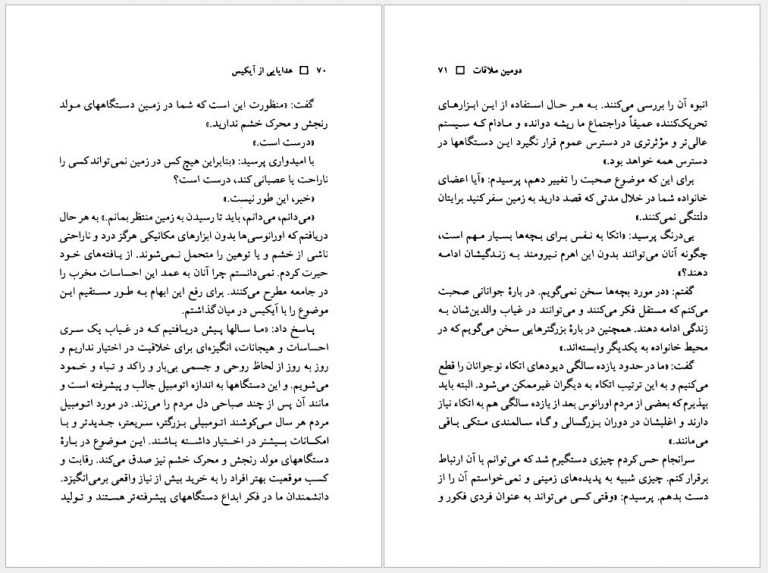 ۷۰ □ هدایایی از آیکیس
گفت: «منظورت این است که شما در زمین دستگاههای مولد
رنجش و محرک خشم ندارید.»
«درست است.»
با امیدواری پرسید: «بنابراین هیچ کس در زمین نمی‌تواند کسی را
ناراحت یا عصبانی کند، درست است؟
«خیر، این طور نیست.»
«می‌دانم، می‌دانم، باید تا رسیدن به زمین منتظر بمانم.» به هر حال
دریافتم که اورانوسی‌ها بدون ابزارهای مکانیکی هرگز درد و ناراحتی
ناشی از خشم و یا توهین را متحمل نمی‌شوند. از یافته‌های خود
حیرت کردم. نمی‌دانستم چرا آنان به عمد این احساسات مخرب را
در جامعه مطرح می‌کنند. برای رفع این ابهام به طور مستقیم این
موضوع را با آیکیس در میان گذاشتم.
پاسخ داد: «ما سالها پیش دریافتیم که در غیاب یک سری
احساسات و هیجانات، انگیزه‌ای برای خلاقیت در اختیار نداریم و
روز به روز از لحاظ روحی و جسمی بی‌بار و راکد و تباه و خمود
می‌شویم. و این دستگاهها به اندازه اتومبیل جالب و پیشرفته است و
مانند آن پس از چند صباحی دل مردم را می‌زند. در مورد اتومبیل
مردم هر سال می‌کوشند اتومبیلی بزرگتر، سریعتر، جدیدتر و با
امکانات بیشتر در اختیار داشته باشند. این موضوع در بارهٔ
دستگاههای مولد رنجش و محرک خشم نیز صدق می‌کند. رقابت و
کسب موقعیت بهتر افراد را به خرید بیش از نیاز واقعی برمی‌انگیزد.
دانشمندان ما در فکر ابداع دستگاههای پیشرفته‌تر هستند و تولید
دومین ملاقات □ ۷۱
انبوه آن را بررسی می‌کنند. به هر حال استفاده از این ابزارهای
تحریک‌کننده عمیقاً دراجتماع ما ریشه دوانده و مادام که سیستم
عالی‌تر و مؤثرتری در دسترس عموم قرار نگیرد این دستگاهها در
دسترس همه خواهد بود.»
برای این که موضوع صحبت را تغییر دهم، پرسیدم: «آیا اعضای
خانواده شما در خلال مدتی که قصد دارید به زمین سفر کنید برایتان
دلتنگی نمی‌کنند.»
بی‌درنگ پرسید: «اتکا به نفس برای بچه‌ها بسیار مهم است،
چگونه آنان می‌توانند بدون این اهرم نیرومند به زندگیشان ادامه
دهند؟»
گفتم: «در مورد بچه‌ها سخن نمی‌گویم. در بارهٔ جوانانی صحبت
می‌کنم که مستقل فکر می‌کنند و می‌توانند در غیاب والدین‌شان به
زندگی ادامه دهند. همچنین در بارهٔ بزرگترهایی سخن می‌گویم که در
محیط خانواده به یکدیگر وابسته‌اند.»
گفت: «ما در حدود یازده سالگی دیودهای اتکاء نوجوانان را قطع
می‌کنیم و به این ترتیب اتکاء به دیگران غیرممکن می‌شود. البته باید
بپذیرم که بعضی از مردم اورانوس بعد از یازده سالگی هم به اتکاء نیاز
دارند و اغلبشان در دوران بزرگسالی و گاه سالمندی متکی باقی
می‌مانند.»
سرانجام حس کردم چیزی دستگیرم شد که می‌توانم با آن ارتباط
برقرار کنم. چیزی شبیه به پدیده‌های زمینی و نمی‌خواستم آن را از
دست بدهم. پرسیدم: «وقتی کسی می‌تواند به عنوان فردی فکور و